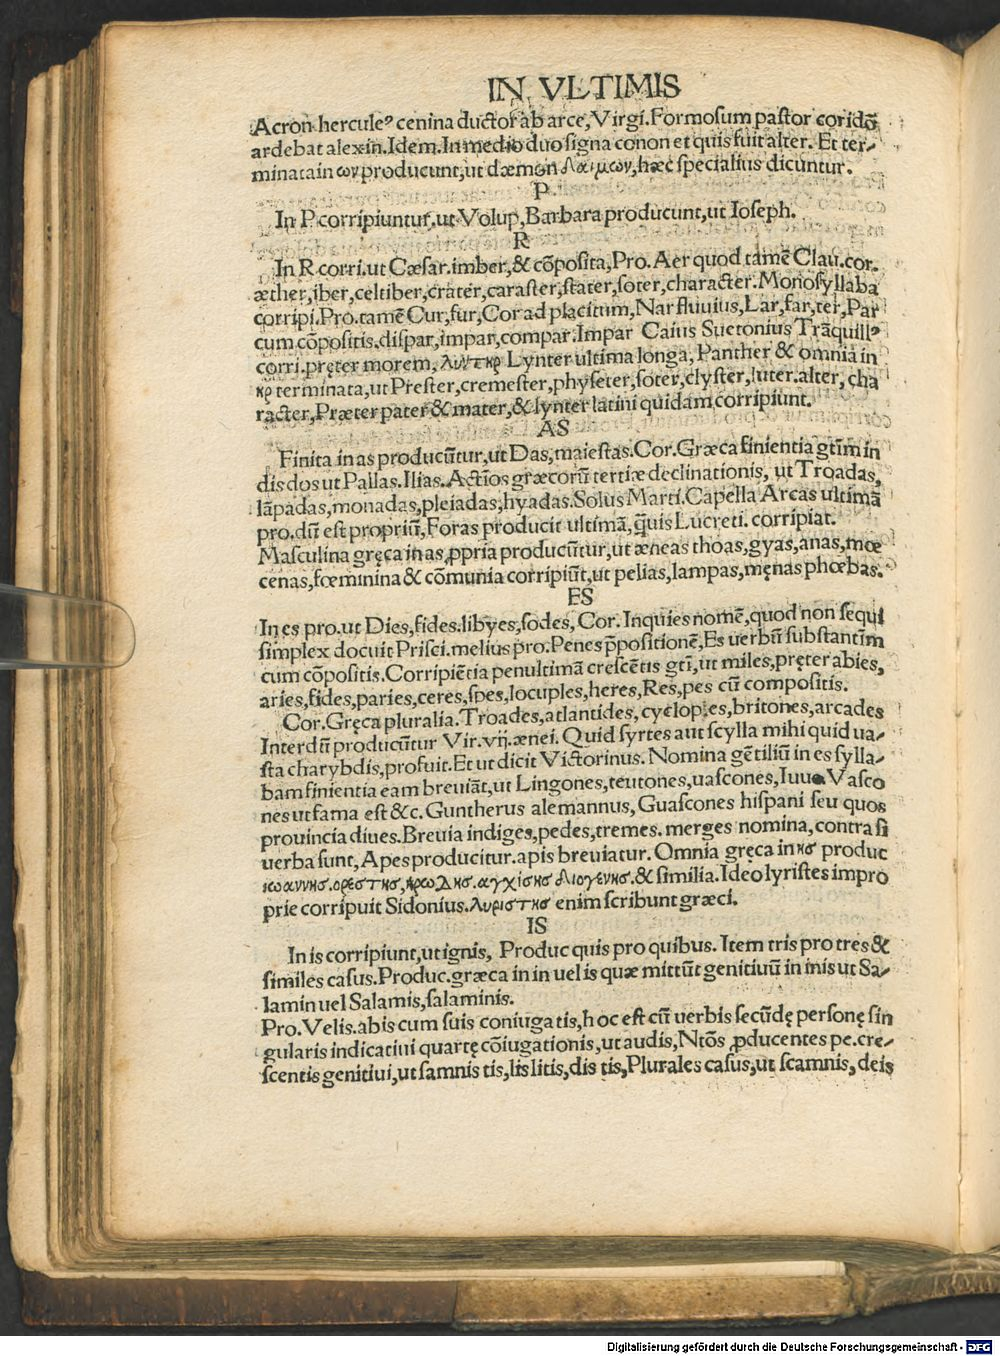 IN VLTIMIS
Acron herculeꝰ cenina ductor ab arce, Virgi. Formosum pastor coridõ
ardebat alexin. Idem. In medio duo signa conon et quis fuit alter. Et ter⸗
minata in ων producunt, ut dæmon δαιμων, hæc specialius dicuntur.
P
In P. corripiuntur, ut Volup, Barbara producunt, ut Ioseph.
R
In R corri. ut Cæsar. imber, & cõposita, Pro. Aer quod tamẽ Clau. cor.
æther, iber, celtiber, crater, caraster, stater, soter, character. Monosyllaba
corripi. Pro. tamẽ Cur, fur, Cor ad placitum, Nar fluuius, Lar, far, ter, Par
cum cõpositis, dispar, impar, compar. Impar Caius Suetonius Trãquillꝰ
corri. pręter morem, λυντηρ Lynter ultima longa, Panther & omnia in
ηρ terminata, ut Prester, cremester, physeter, soter, clyster, luter. alter, cha
racter, Præter pater & mater, & lynter latini quidam corripiunt.
AS
Finita in as producũtur, ut Das, maiestas. Cor. Græca finientia gtĩm in
dis dos ut Pallas. Ilias. Actĩos græcorũ tertiæ declinationis, ut Troadas,
lãpadas, monadas, pleiadas, hyadas. Solus Marti. Capella Arcas ultimã
pro. dũ est propriũ, Foras producit ultimã, q̃uis Lucreti. corripiat.
Masculina gręca in as, ꝓpria producũtur, ut æneas thoas, gyas, anas, mœ
cenas, fœminina & cõmunia corripiũt, ut pelias, lampas, męnas phœbas.
ES
In es pro. ut Dies, fides. libyes, sodes, Cor. Inquies nomẽ, quod non sequi
simplex docuit Prisci. melius pro. Penes p̃positionẽ, Es uerbũ substantiũm
cum cõpositis. Corripiẽtia penultimã crescẽtis gtĩ, ut miles, pręter abies,
aries, fides, paries, ceres, spes, locuples, heres, Res, pes cũ compositis.
Cor. Gręca pluralia. Troades, atlantides, cyclopes, britones, arcades
Interdũ producũtur Vir. vij. ænei. Quid syrtes aut scylla mihi quid ua⸗
sta charybdis, profuit. Et ut dicit Victorinus. Nomina gẽtiliũ in es sylla⸗
bam finientia eam breuiãt, ut Lingones, teutones, uascones, Iuue Vasco
nes ut fama est &c. Guntherus alemannus, Guascones hispani seu quos
prouincia diues. Breuia indiges, pedes, tremes. merges nomina, contra si
uerba sunt, Apes producitur. apis breuiatur. Omnia gręca in ησ produc
ιωαννησ. ορεστησ, ηρωδησ. αγχισησ διογενησ. & similia. Ideo lyristes impro
prie corripuit Sidonius. λυριστησ enim scribunt græci.
IS
In is corripiunt, ut ignis, Produc quis pro quibus. Item tris pro tres &
similes casus. Produc. græca in in uel is quæ mittũt genitiuũ in inis ut Sa⸗
lamin uel Salamis, salaminis.
Pro. Velis. abis cum suis coniugatis, hoc est cũ uerbis secũdę personę sin
gularis indicatiui quartę cõiugationis, ut audis, Ntõs ꝓducentes pe. cre⸗
scentis genitiui, ut samnis tis, lis litis, dis tis, Plurales casus, ut scamnis, deis
Digitalisierung gefördert durch die Deutsche Forschungsgemeinschaft - DFG